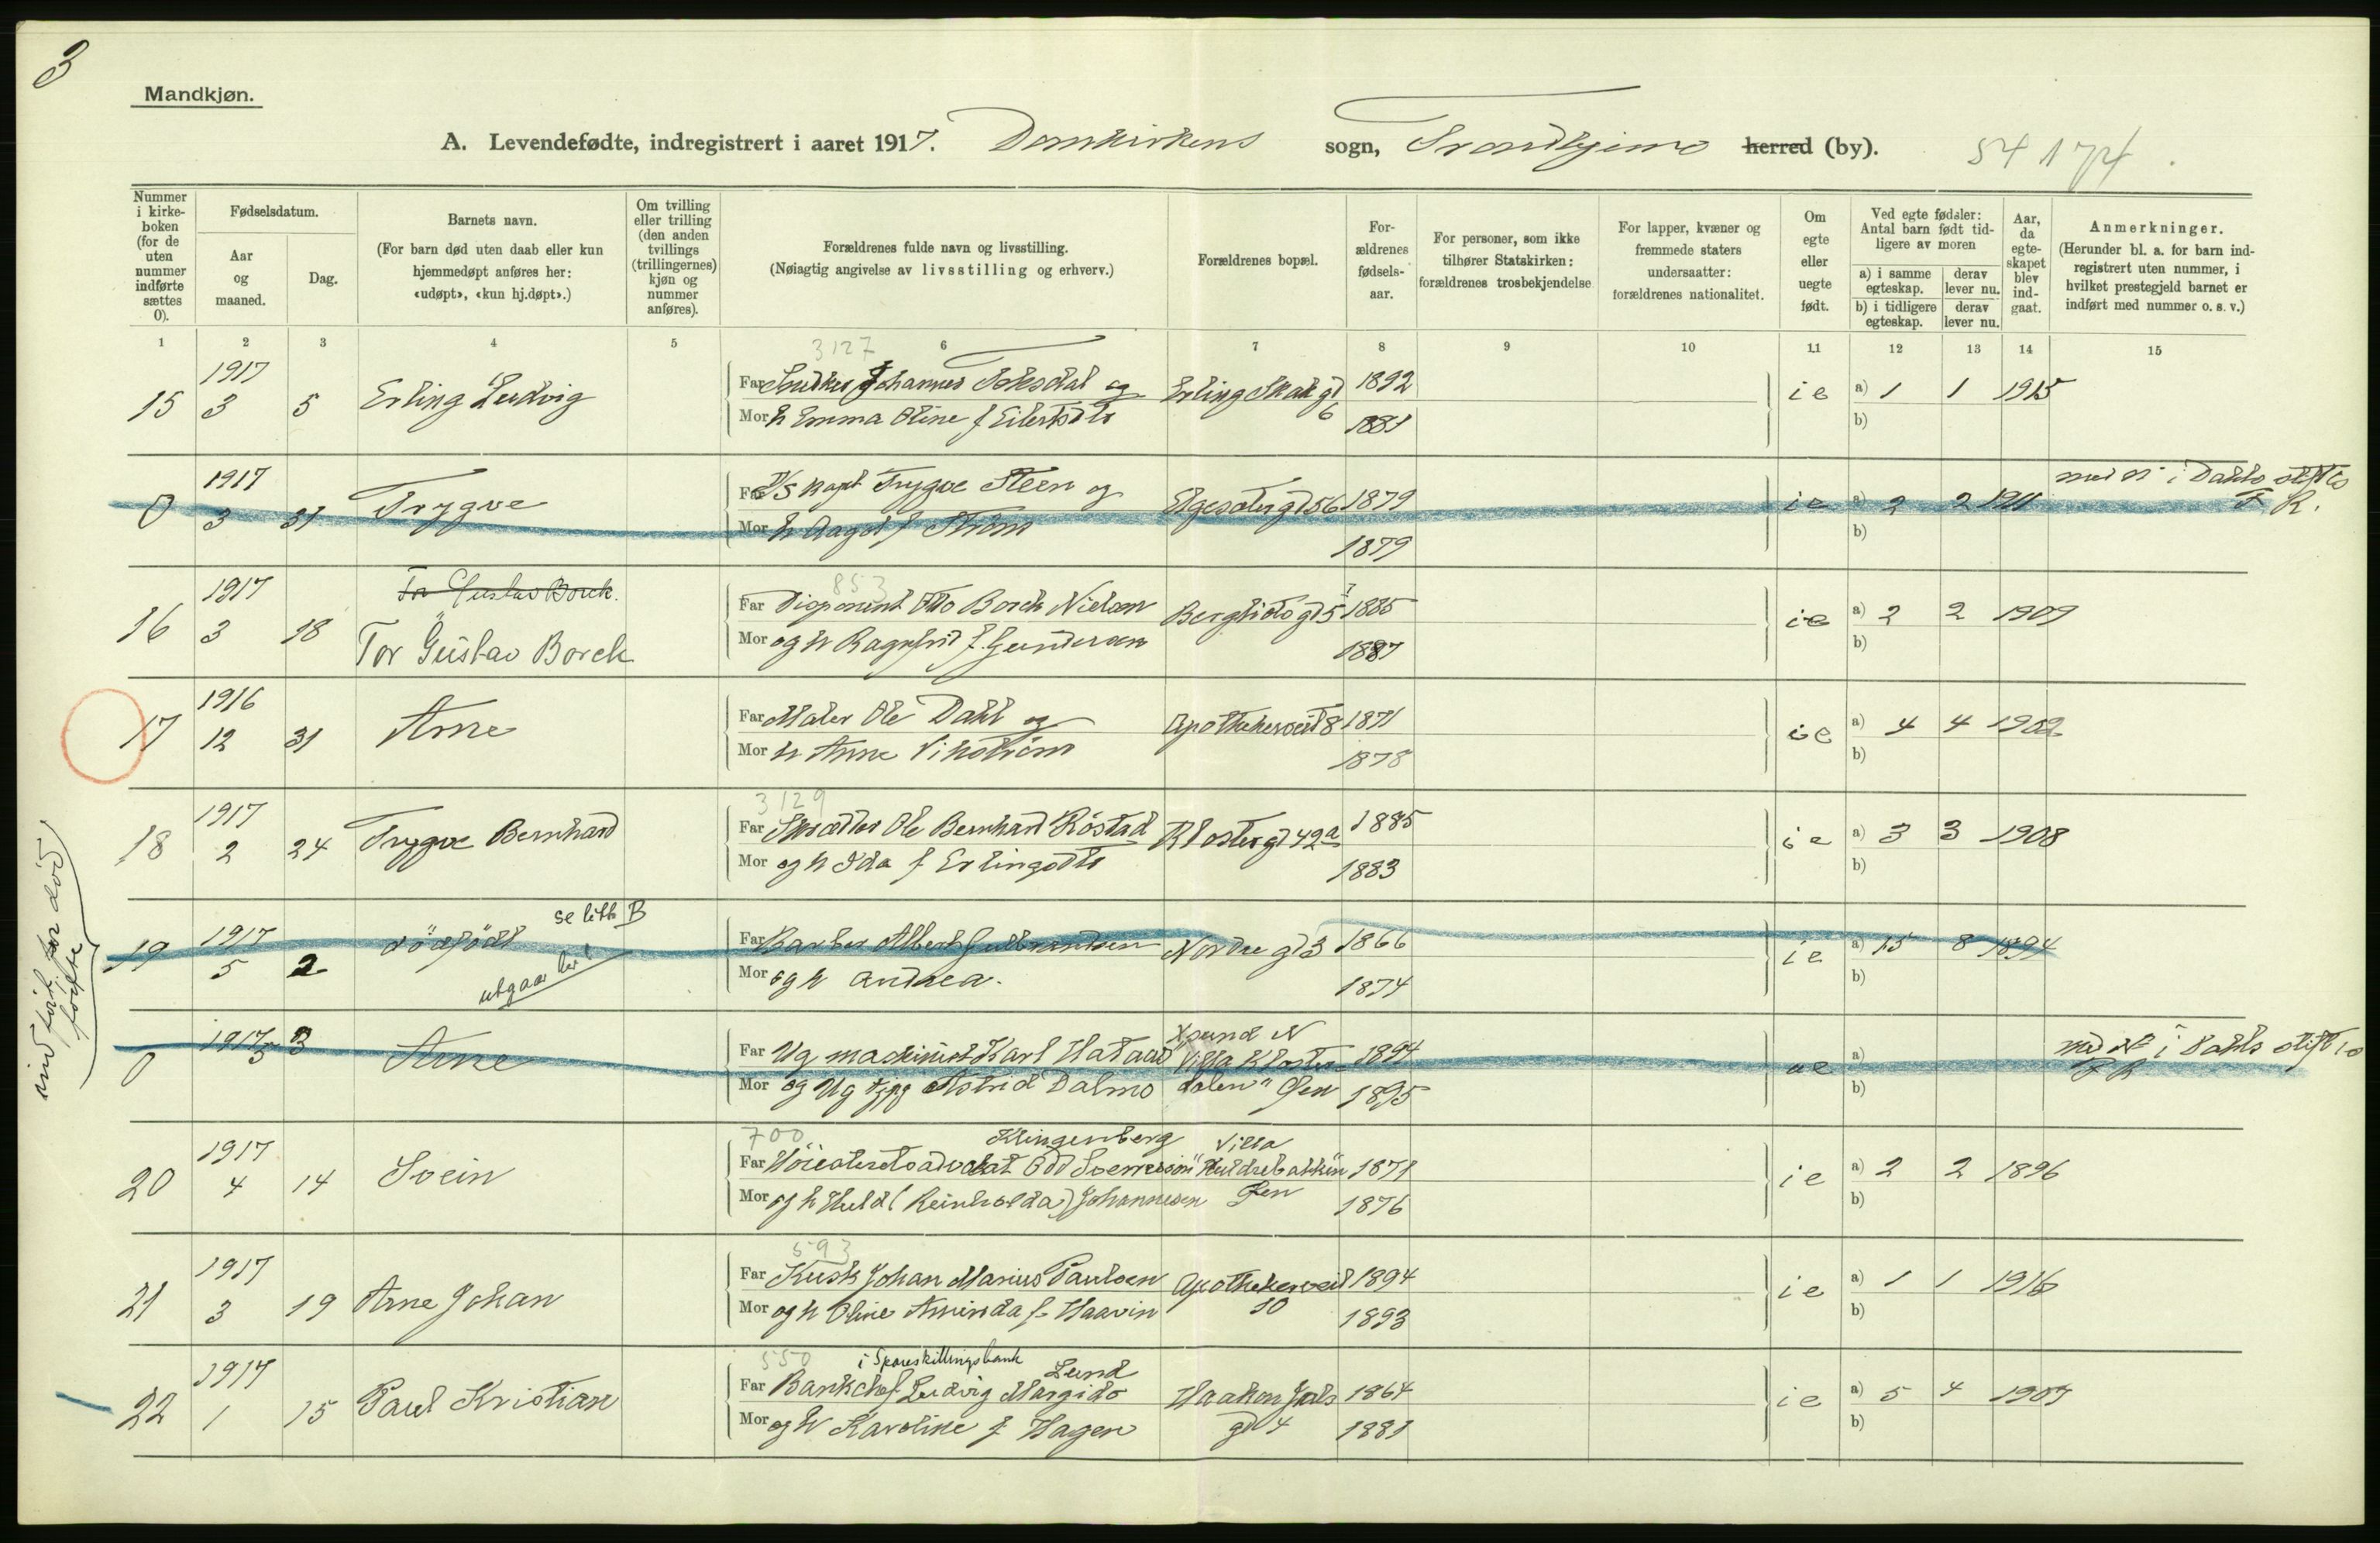 3
Mandkjøn.
A. Levendefødte, indregistrert i aaret 1917. Domkirkens sogn, Trondhjems herred (by). 54 174.
Nummer i kirke-boken (for de uten nummer indførte sættes 0).
Fødselsdatum.
Aar og maaned.
Dag.
Barnets navn.
(For barn død uten daab eller kun hjemmedøpt anføres her: «udøpt», «kun hj.døpt».)
Om tvilling eller trilling (den anden tvillings (trillingernes) kjøn og nummer anføres).
Forældrenes fulde navn og livsstilling.
(Nøiagtig angivelse av livsstilling og erhverv.)
Forældrenes bopæl.
For-ældrenes fødsels-aar.
For personer, som ikke tilhører Statskirken: forældrenes trosbekjendelse
For lapper, kvæner og fremmede staters undersaatter: forældrenes nationalitet.
Om egte eller uegte født.
Ved egte fødsler: Antal barn født tid-ligere av moren
a) i samme egteskap.
derav lever nu.
b) i tidligere egteskap.
derav lever nu.
Aar, da egte-skapet blev ind-gaat.
Anmerkninger.
(Herunder bl. a. for barn ind-registrert uten nummer, i hvilket prestegjeld barnet er indført med nummer o. s. v.)
1 2 3 4 5 6 7 8 9 10 11 12 13 14 15
3127
1917
15 3 5 Erling Ludvig Far Johannes Foksdal og Erling Skak gt 1892 ie a) 1 1 1915
Mor h Emma Oline f Eilertsdtr 6 1881 b)
1917
0 3 31 Trygve Far kapt Trygve Steen og Elgesetergt 56 1879 ie a) 2 2 1911 med N i Dahls stift
Mor h Aagot f Strøm 1879 b) F. R.
853
1917 Tor Gustav Borch.
16 3 18 Tor Gustav Borch Far Disponent Otto Borch Nielsen Bergslids gt 5 1885 ie a) 2 2 1909
Mor og h Ragnfrid f. Gundersen 1887 b)
1916
17 12 31 Arne Far Maler Ole Dahl og Apothekerveit 8 1871 ie a) 4 4 1902
Mor h Anne Vikstrøm 1878 b)
3129
1917
18 2 24 Trygve Bernhard Far Skrædder Ole Bernhard Röstad Klostergt 42a 1885 ie a) 3 3 1908
Mor og h Ida f Erlingsdtr 1883 b)
se litr B
1917
19 5 2 dödfödt Far Barber Albert Gulbrandsen Nordre gt 3 1866 ie a) 15 8 1894
utgaar her!
Mor og h Andrea. 1874 b)
ind för paa död fødte
1917
0 5 3 Arne Far Ug maskinist Karl Hataas Villa Kloster- 1894 ue a) med N i Dahls stift
Mor og Ug tjpg Astrid Dalmo dalen" Øen 1895 b) F R
700 Klingenberg Villa
1917
20 4 14 Svein Far Höiesteretsadvokat Odd Sverressön "Huldrebakken 1871 ie a) 2 2 1896
Mor og h Huld (Reinholda) Johannesen Øen 1876 b)
593
1917
21 3 19 Arne Johan Far Kusk Johan Marius Paulsen Apothekerveit 1894 ie a) 1 1 1916
Mor og h Oline Aminda f. Haavin 10 1893 b)
550 i Spareskillingsbank Lund
1917
22 1 15 Paul Kristian Far Bankchef Ludvig Margido Haakon Jarls 1864 ie a) 5 4 1907
Mor og h Karoline f Hagen gt 4 1881 b)